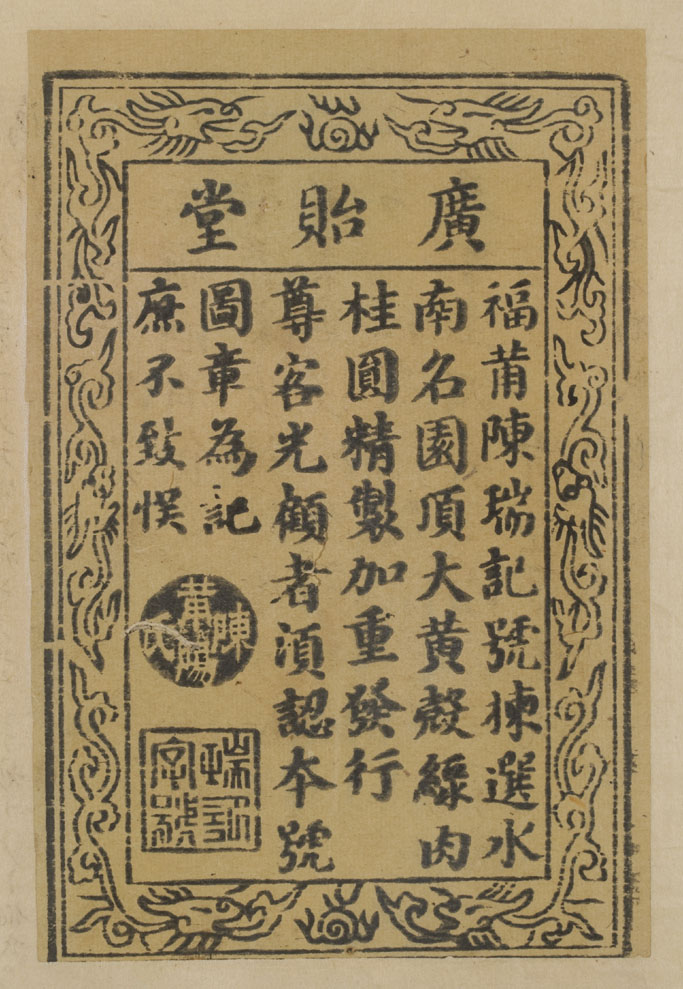 廣貽堂
福莆陳瑞記號揀選水
南名園頂大黃殼綠肉
桂圓精製加重發行
尊客光顧者須認本號
圖章為記
庶不致悞
莆陳
瑞記
字號